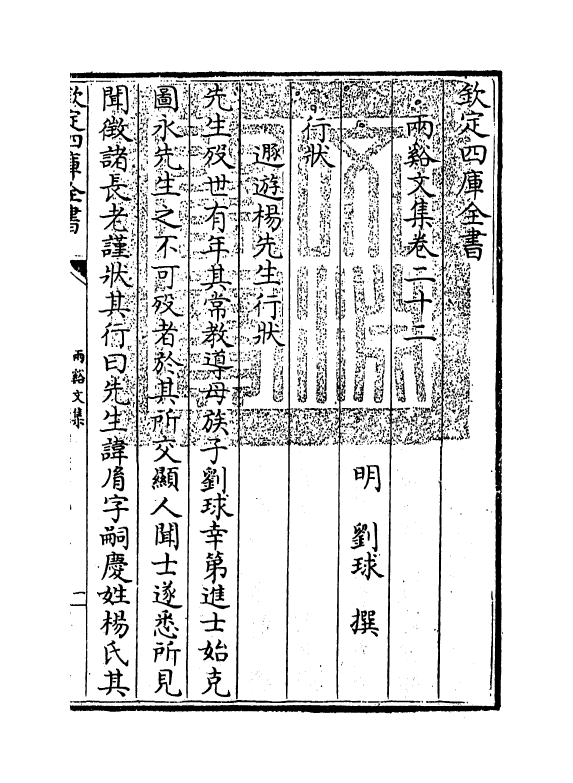 欽定四庫全書
兩谿文集卷二十二
明 劉球 撰
行狀
遯遊楊先生行狀
先生歿世有年其常教導母族子劉球幸第進士始克
圖永先生之不可歿者於其所交顯人聞士遂悉所見
聞徴諸長老謹狀其行曰先生諱㣧字嗣慶姓楊氏其
欽定四庫全書
兩谿文集